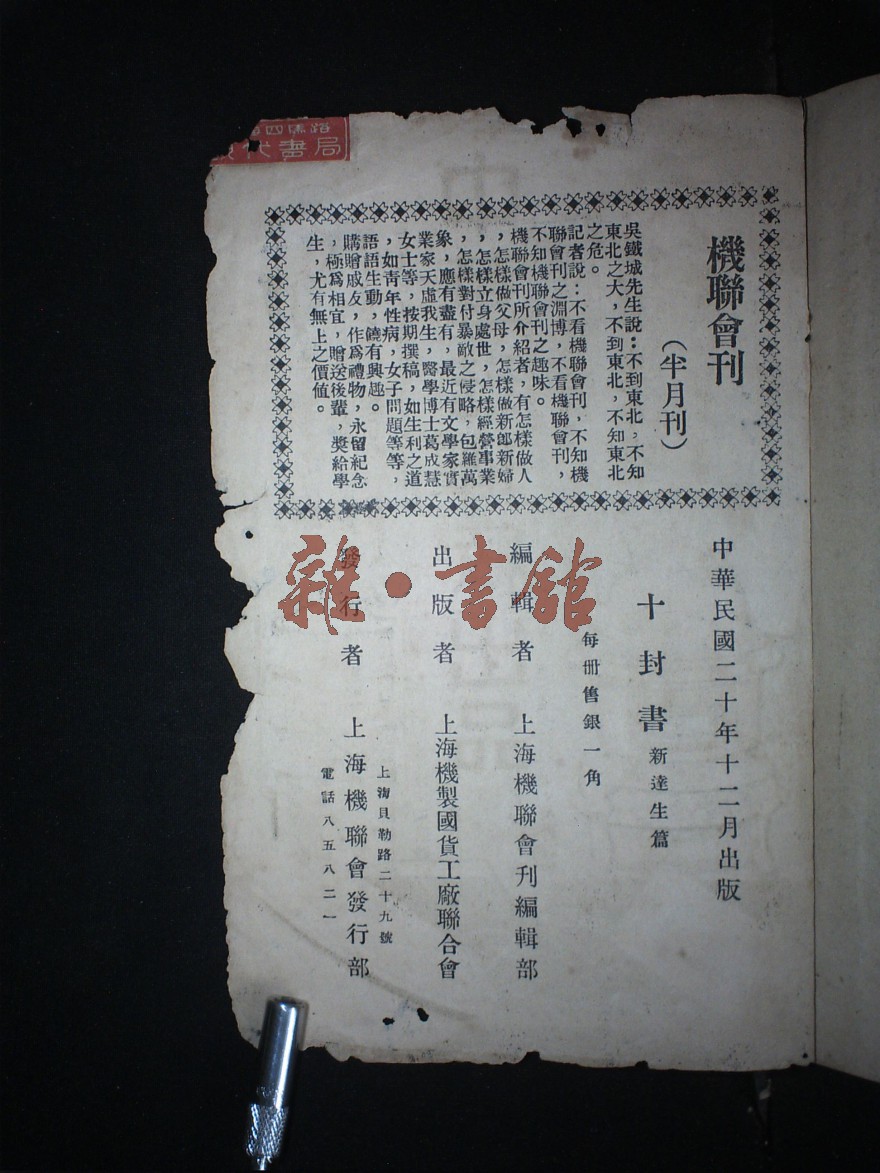 機聯會刊
（半月刊）
吳鐵城先生說：不到東北，不知
東北之大，不到東北，不知東北
之危。
記者說：不看機聯會刊，不知機
聯會刊之淵博，不看機聯會刊，
不知機聯會刊之趣味。
機聯會刊所介紹者，有怎樣做人
，怎樣做父母，怎樣做新郎新婦
，怎樣立身處世，怎樣經營事業
，怎樣對付暴敵之侵略，包羅萬
象，應有盡有，最近有文學家實
業家天虛我生，醫學博士葛成慧
女士等，按期撰稿，如生利之道
，如靑年性病，女子問題等等，
語語生動，饒有興趣。
購贈戚友，作爲禮物，永留紀念
，極爲相宜，贈送後輩，獎給學
生，尤有無上之價値。
中華民國二十年十二月出版
十封書 新達生篇
每册售銀一角
編輯者 上海機聯會刊編輯部
出版者 上海機製國貨工廠聯合會
發行者 上海機聯會發行部
上海貝勒路二十九號
電話八五八二一
四馬路
代書局
雜·書館